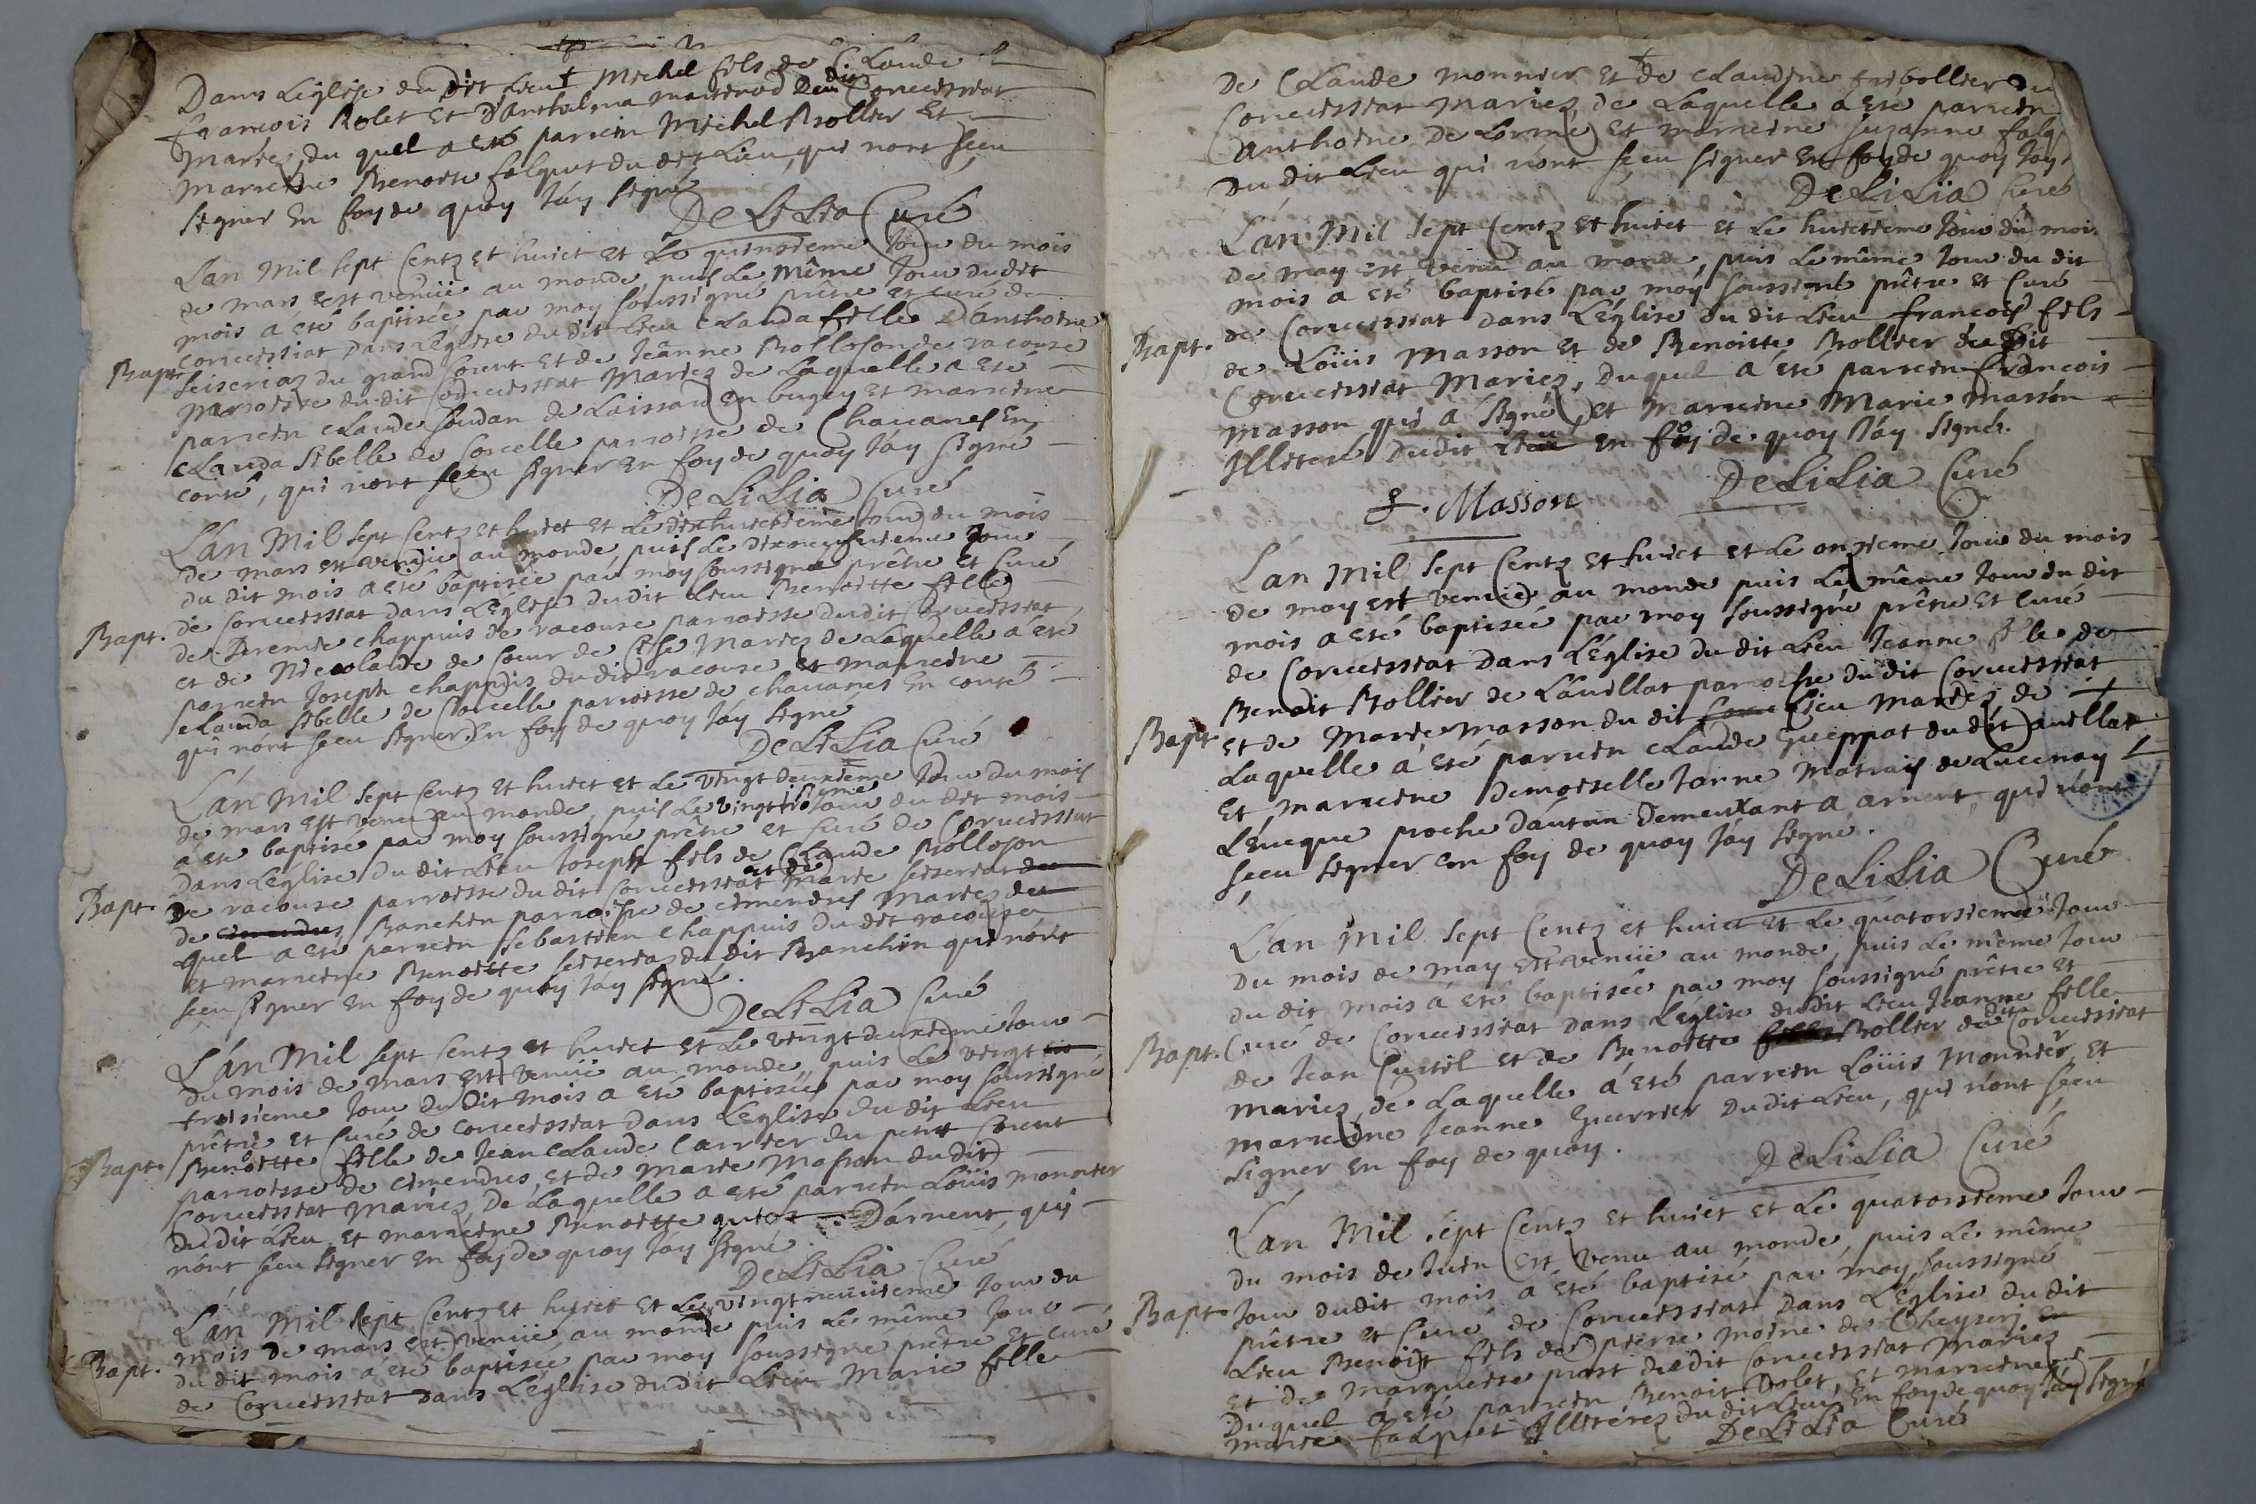 Dans Léglise du dit Lieu Michel fils de Claude
francois Rolet Et d'Anthelma Marterod du dit Coruessiat
Mariez, du quel a esté parrein Michel Rollier Et
Marreine Benoite falquet du dit Lieu, qui nont sçeu
signer En foy de quoy Jáy signé
DeLiLia Curé
L'an Mil sept Centz Et huict Et Le quinsieme Jour du mois
de mars est venüe au monde, puis Le même Jour du dit
mois a esté baptisée par moy soussigné prêtre et curé de
Bapt.
Coruessiat Dans Léglise du dit Lieu Clauda fille D'anthoine
seiseriaz du grand Corent Et de Jeanne Rolloson de racouse
parroisse du dit Coruessiat Mariez de Laquelle a esté
parrein Claude soudan de Loissau En bugey et marreine
Clauda sibelle de Corcelle parroisse de Chauanes En
conté, qui nont sçeu signer en foy de quoy Jáy signé
DeLiLia Curé
L'an Mil sept Centz et huict et Le dixhuictieme Jour du mois
de mars est venüe au monde, puis Le dixneufuieme Jour
du dit mois a esté baptisée par moy soussigné prêtre et Curé
de Coruessiat dans L'église du dit Lieu Benoitte fille
Bapt.
de Pierre chappuis de racouse parroisse du dit Coruessiat,
et de Nicolarde de Coeur de Cise Mariez de Laquelle a esté
parrein Joseph chappuis du dit racouse et marreine
Clauda sibelle de Corcelle parroisse de chauanes En conté
qui nónt sçeu signer En foy de quoy Jáy signé
DeLiLia Curé
L'án Mil sept Centz et huict et Le vingt deuxieme Jour du mois
de mars est venu au monde, puis Le vingt troisieme Jour du dit mois
a esté baptisé par moy soussigné prêtre et Curé de Coruessiat
Dans L'église du dit Lieu Joseph fils de Claude Rolloson
Bapt.
De racouse parroisse du dit Coruessiat et de Marie seiseriat
de Ranchin parroisse de cimendres Mariez du
quel a esté parrein sebastien chappuis du dit racouse
et marreine Benoitte seiseriaz du dit Branchin qui nónt
sçeu signer en foy de quoy Jáy signé.
DeLiLia Curé
L'án Mil sept Centz et huict et Le vingt deuxieme Jour
du mois de mars est venüe au monde, puis Le vingt
troisieme Jour du dit mois a esté baptisée par moy soussigné
prêtre et Curé de Coruessiat dans L'église du dit Lieu
Bapt.
Benoitte fille de Jean Claude Carrier du petit Corent
parroisse de cimendres, et de Marie Masson du dit
Coruessiat Mariez, De Laquelle a esté parrein Loüis monnier
du dit Lieu, et marreine Benoitte D'árnent, qui
nónt sçeu signer en foy de quoy Jáy signé.
DeLiLia Curé
L'án Mil sept Centz et huict et Le vingt neuuieme Jour du
mois de mars est venüe au monde puis Le même Jour
Bapt.
du dit mois a esté baptisée par moy soussigné prêtre et curé
de Coruessiat dans L'église du dit Lieu Marie fille
De Claude monnier et de Claudine tribollier du
Coruessiat Mariez de Laquelle a esté parrein
Anthoine De Lorme et marreine Suzanne falq
du dit Lieu qui nónt sçeu signer En foy de quoy Jay
DeLiLia Curé
L'án Mil sept Centz et huict et Le huictieme Jour du mois
de may est venu au monde, puis Le même Jour du dit
mois a esté baptisé par moy soussigné prêtre et Curé
Bapt.
de Coruessiat dans L'église du dit Lieu francois fils
de Loüis Masson et de Benoitte Rollier du dit
Coruessiat Mariez, Duquel a été parrein francois
Masson qui a signé, et Marreine Marie Masson
Illiteré du dit Lieu en foy de quoy Jáy signé.
DeLiLia Curé
F. Masson
L'án Mil sept Centz et huict et Le onzieme Jour du mois
de may est venüe au monde puis Le même Jour du dit
mois a esté baptisée par moy soussigné prêtre et Curé
de Coruessiat dans L'église du dit Lieu Jeanne fille de
Benoit Rollier de L'auellat parroisse du dit Coruessiat
Bapt.
et de Marie Masson du dit Lieu Mariez de
Laquelle a esté parrein Claude Gueppat du dit auellat
et marreine Demoiselle Janne Matrais de Lucenay
Léueque proche d'áutun Demeurant a arnent, qui nónt
sçeu signer en foy de quoy Jáy signé.
DeLiLia Curé
L'án Mil sept Centz et huict et Le quatorsieme Jour
du mois de may est venüe au monde, puis Le même Jour
du dit mois a esté baptisée par moy soussigné prêtre et
Bapt.
Curé de Coruessiat dans L'église du dit Lieu Jeanne fille
de Jean Curtil et de Benoitte Rollier du dit Coruessiat
mariez, de Laquelle a esté parrein Loüis Monnier et
marreine Jeanne Guerrier du dit Lieu, qui nónt sçeu
signer en foy de quoy.
DeLiLia Curé
L'án Mil sept Centz et huict et Le quatorsieme Jour
du mois de Juin est venu au monde, puis Le même
Bapt.
Jour du dit mois a été baptisé par moy soussigné
prêtre et Curé de Coruessiat dans L'église du dit
Lieu Benoist fils de pierre moine de Cheyseri
et de Marguerite prost du dit Coruessiat Mariez
Du quel a esté parrein Benoit Dolet, et marreine
marie falquet Illiterez du dit Lieu En foy de quoy Jay signé
DeLiLia Curé